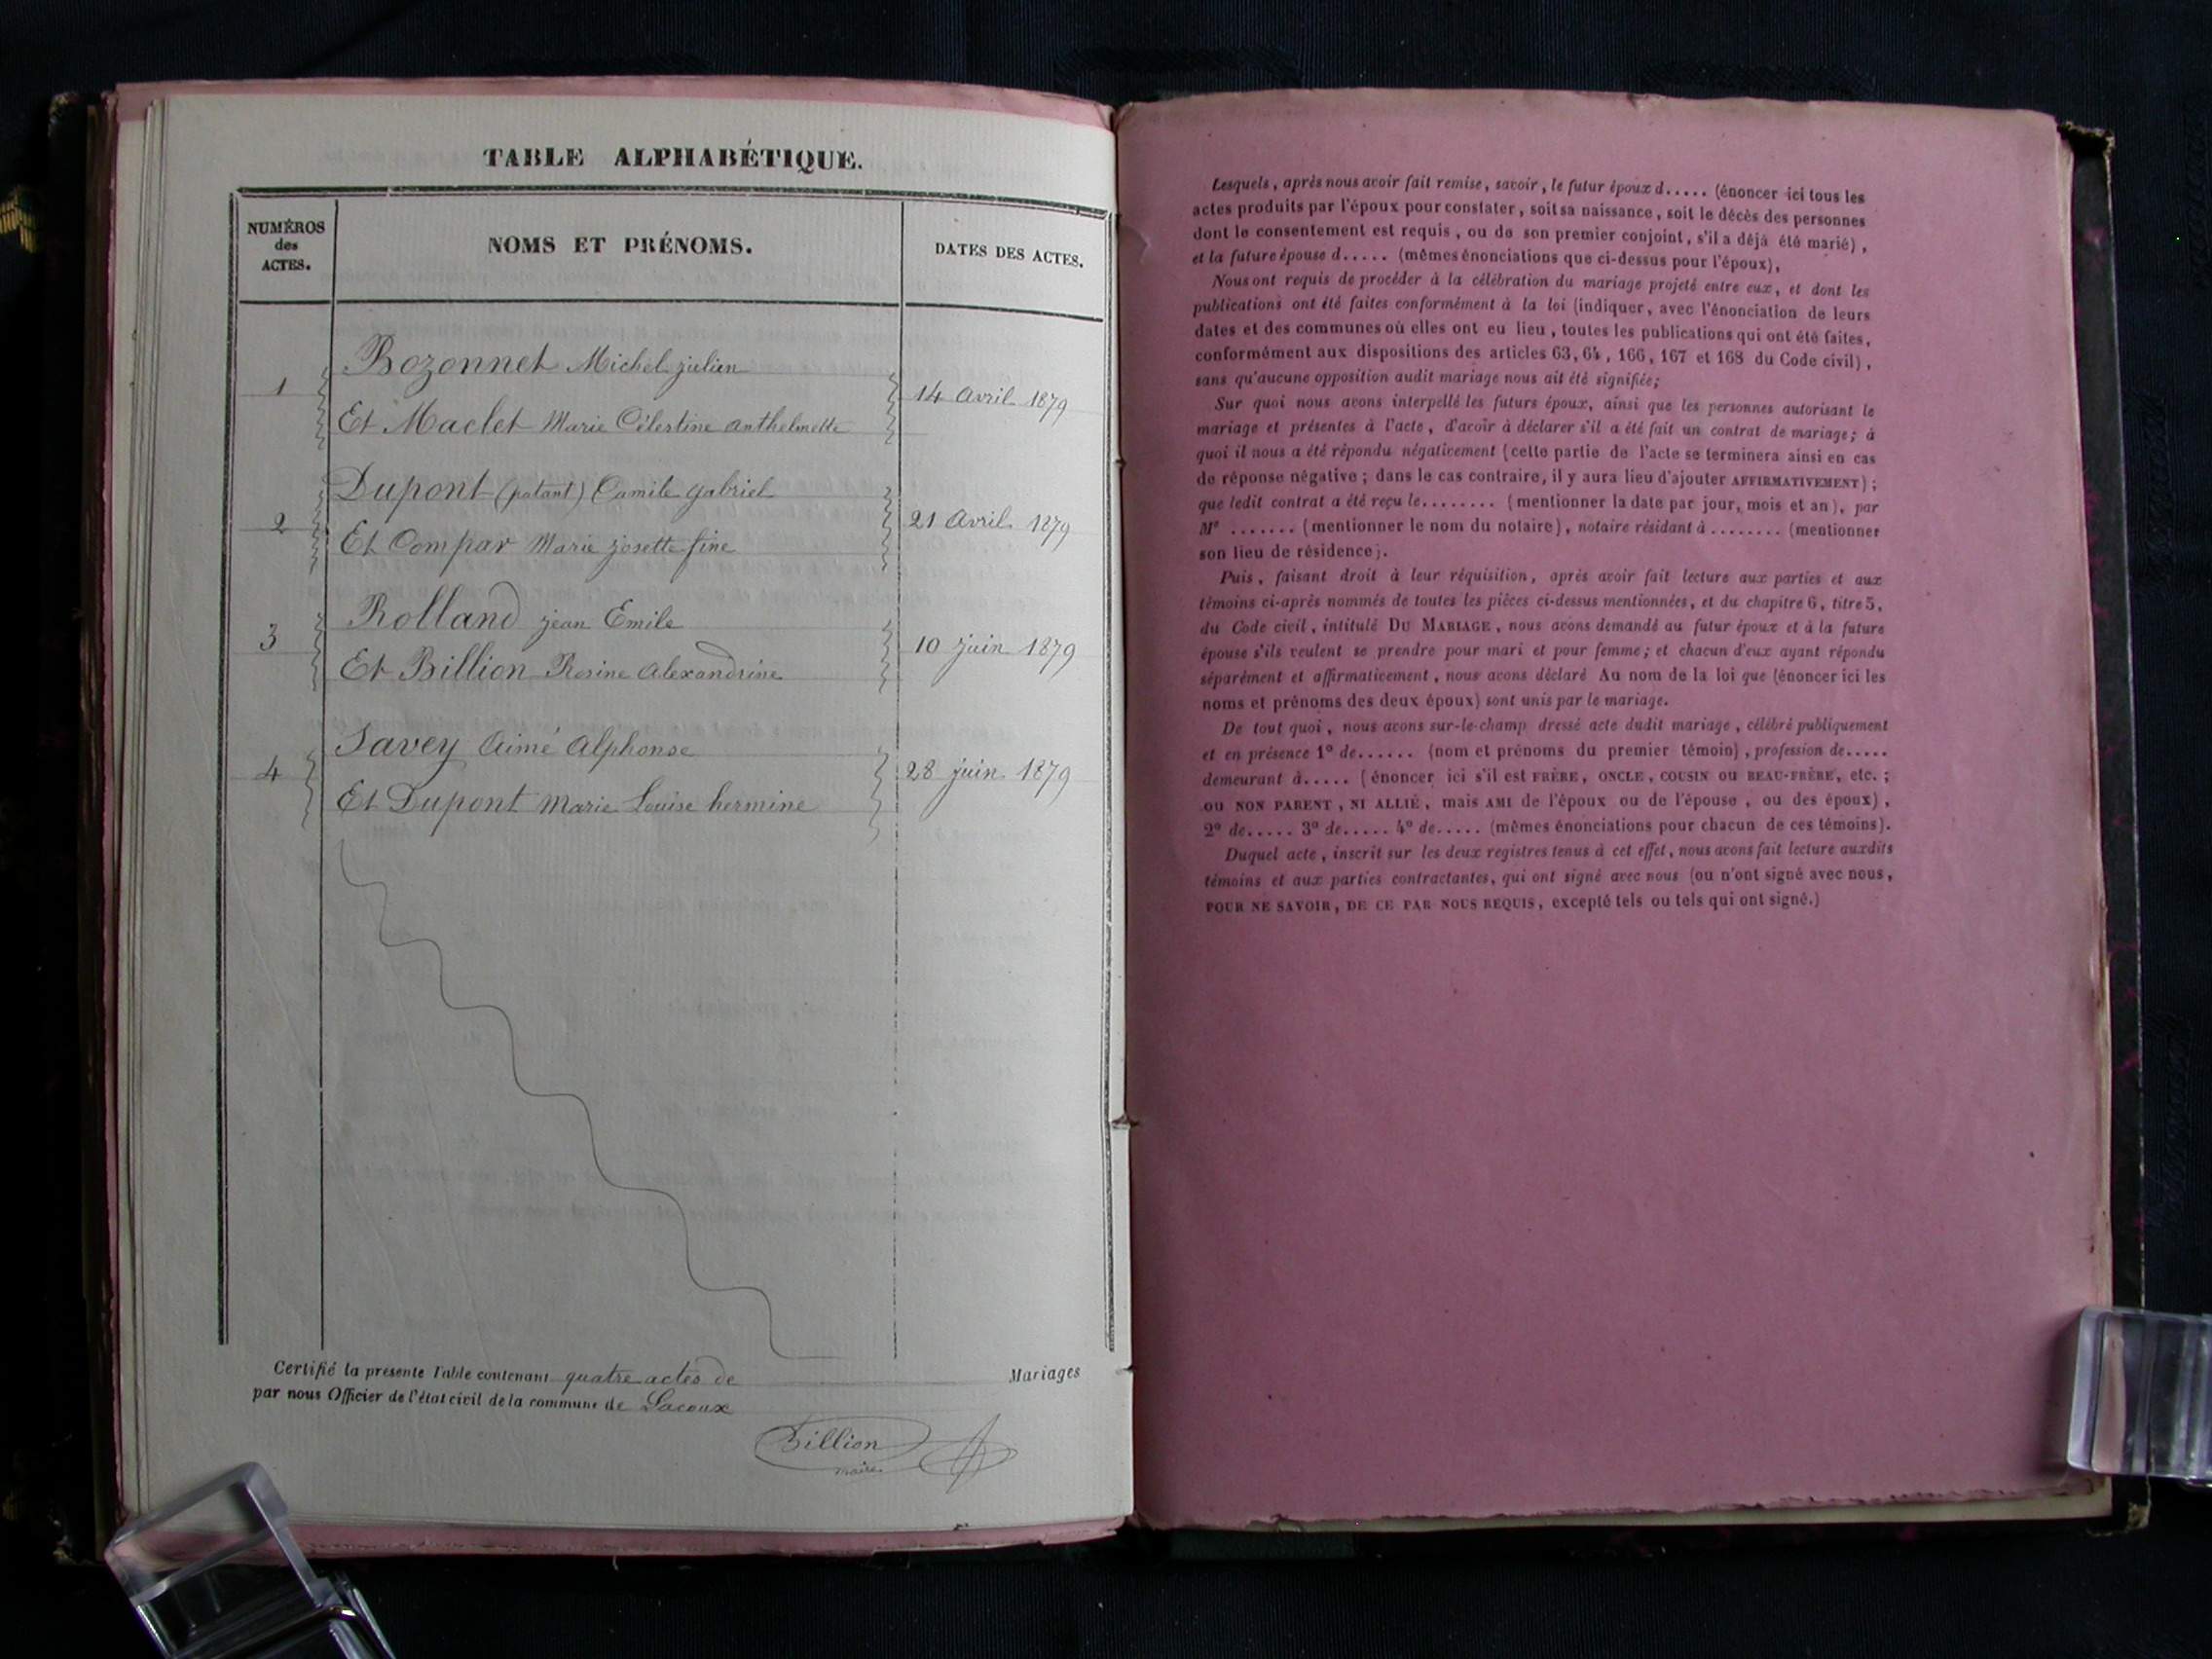 TABLE ALPHABÉTIQUE.
NUMÉROS
des
ACTES.
NOMS ET PRÉNOMS.
DATES DES ACTES.
Bozonnet Michel julien
1
14 Avril 1879
Et Maclet Marie Célestine anthelmette
Dupont (patant) Camile gabriel
2
21 Avril 1879
Et Compar Marie josette fine
Rolland jean Emile
3
10 juin 1879
Et Billion Rosine Alexandrine
Savey Aimé Alphonse
4
28 juin 1879
Et Dupont Marie Louise hermine
Certifié la présente Table contenant quatre actes de Mariages
par nous Officier de l'état civil de la commune de Lacoux
Billion
maire
Lesquels, après nous avoir fait remise, savoir, le futur époux d..... (énoncer ici tous les
actes produits par l'époux pour constater, soit sa naissance, soit le décès des personnes
dont le consentement est requis, ou de son premier conjoint, s'il a déjà été marié),
et la future épouse d..... (mêmes énonciations que ci-dessus pour l'époux),
Nous ont requis de procéder à la célébration du mariage projeté entre eux, et dont les
publications ont été faites conformément à la loi (indiquer, avec l'énonciation de leurs
dates et des communes où elles ont eu lieu, toutes les publications qui ont été faites,
conformément aux dispositions des articles 63, 64, 166, 167 et 168 du Code civil),
sans qu'aucune opposition audit mariage nous ait été signifiée;
Sur quoi nous avons interpellé les futurs époux, ainsi que les personnes autorisant le
mariage et présentes à l'acte, d'avoir à déclarer s'il a été fait un contrat de mariage; à
quoi il nous a été répondu négativement (cette partie de l'acte se terminera ainsi en cas
de réponse négative; dans le cas contraire, il y aura lieu d'ajouter AFFIRMATIVEMENT);
que ledit contrat a été reçu le........ (mentionner la date par jour, mois et an), par
Me ....... (mentionner le nom du notaire), notaire résidant à ........ (mentionner
son lieu de résidence).
Puis, faisant droit à leur réquisition, après avoir fait lecture aux parties et aux
témoins ci-après nommés de toutes les pièces ci-dessus mentionnées, et du chapitre 6, titre 5,
du Code civil, intitulé DU MARIAGE, nous avons demandé au futur époux et à la future
épouse s'ils veulent se prendre pour mari et pour femme; et chacun d'eux ayant répondu
séparément et affirmativement, nous avons déclaré Au nom de la loi que (énoncer ici les
noms et prénoms des deux époux) sont unis par le mariage.
De tout quoi, nous avons sur-le-champ dressé acte dudit mariage, célébré publiquement
et en présence 1º de...... (nom et prénoms du premier témoin), profession de.....
demeurant à..... (énoncer ici s'il est FRÈRE, ONCLE, COUSIN ou BEAU-FRÈRE, etc.;
ou NON PARENT, NI ALLIÉ, mais AMI de l'époux ou de l'épouse, ou des époux),
2º de..... 3º de..... 4º de..... (mêmes énonciations pour chacun de ces témoins).
Duquel acte, inscrit sur les deux registres tenus à cet effet, nous avons fait lecture auxdits
témoins et aux parties contractantes, qui ont signé avec nous (ou n'ont signé avec nous,
POUR NE SAVOIR, DE CE PAR NOUS REQUIS, excepté tels ou tels qui ont signé.)